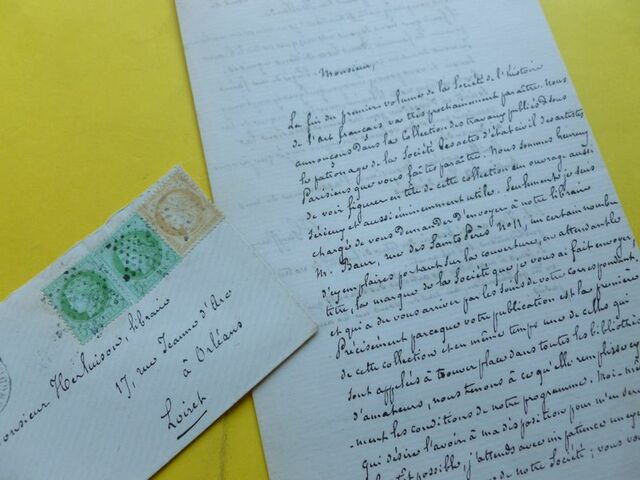 Monsieur,
La fin du premier volume de la Société de l'histoire
de l'art français va très prochainement paraître. Nous
annonçons dans la Collection des travaux publiés sous
le patronage de la Société les actes d'état civil des artistes
Parisiens que vous faites paraître. Nous sommes heureux
de voir figurer en tête de cette collection un ouvrage aussi
sérieux et aussi éminemment utile. Seulement je suis
chargé de vous demander d'envoyer à notre libraire
M. Baur, rue des Saints Pères No 11, un certain nombre
d'exemplaires portant sur la couverture, en attendant le
titre, la marque de la Société que je vous ai fait envoyer,
et qui a dû vous arriver par les soins de votre correspondant.
Précisément parceque votre publication est la première
de cette collection et en même temps une de celles qui
sont appelées à trouver place dans toutes les bibliothè
d'amateurs, nous tenons à ce qu'elle remplisse ex
-ment les conditions de notre programme. Moi-mê
qui désire l'avoir à ma disposition pour m'en ser
possible, j'attends avec impatience un ex
de notre Société; vous vo
Monsieur Herluison, libraire
17, rue Jeanne d'Arc
à Orléans
Loiret